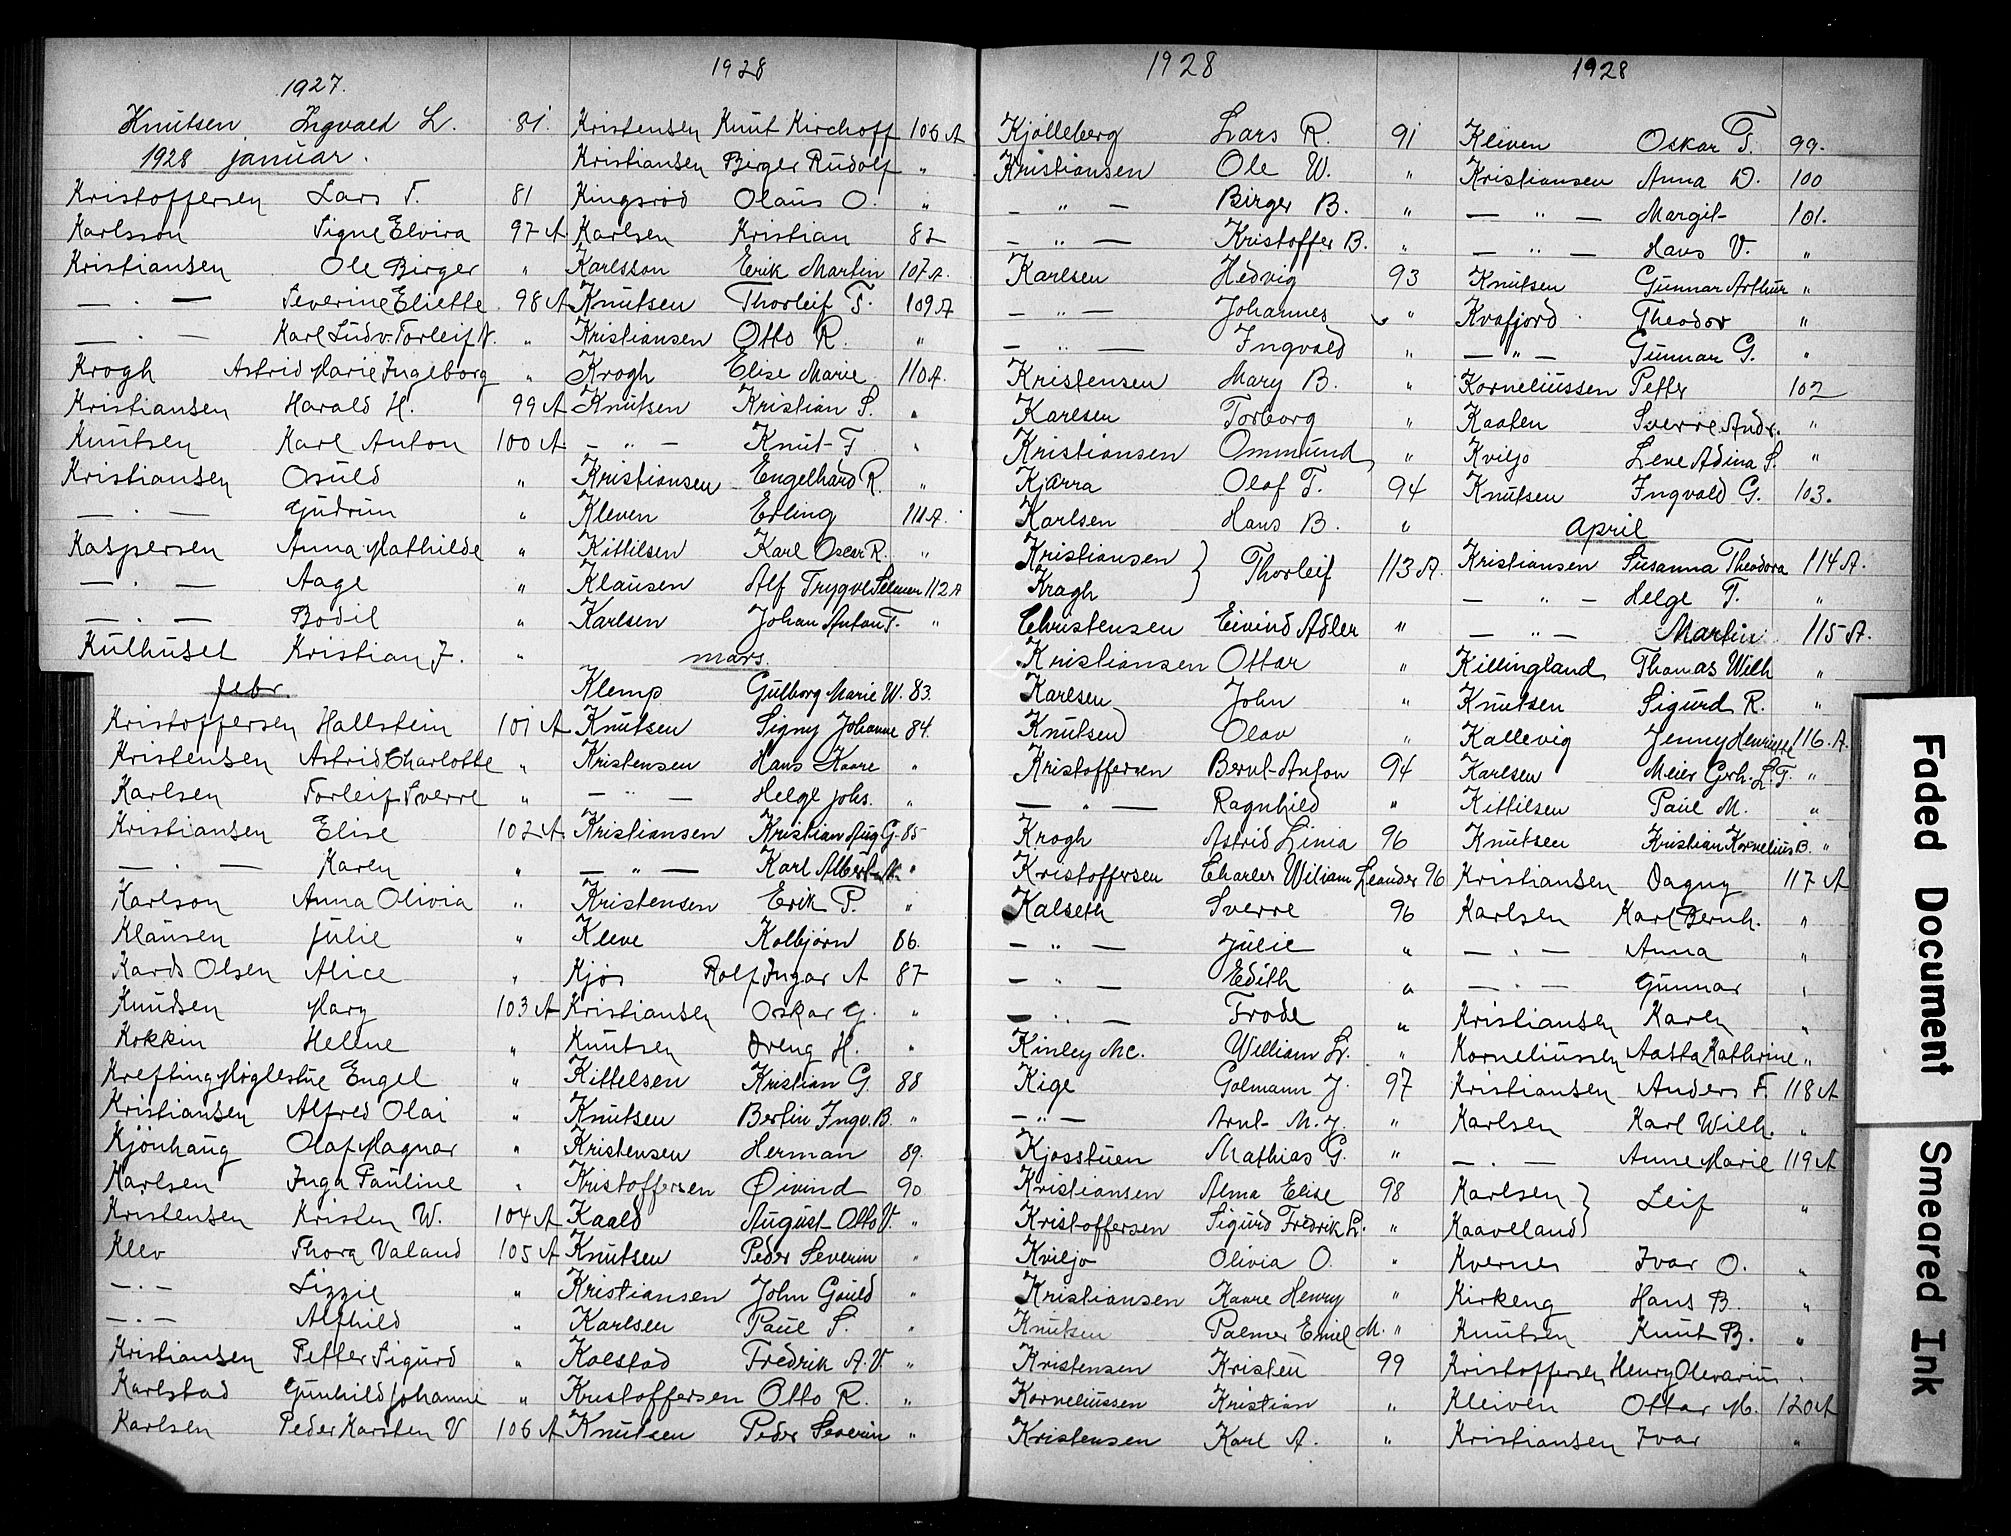 1927.
Knutsen Ingvald L. 81
1928 januar.
Kristoffersen Lars T. 81
Karlsson Signe Elvira 97 A
Kristiansen Ole Birger "
— " — Severine Eliette 98 A
— " — Karl Ludv. Torleif N. "
Krogh Astrid Marie Ingeborg "
Kristiansen Harald H. 99 A
Knutsen Karl Anton 100 A
Kristiansen Osuld "
— " — Gudrun "
Kaspersen Anna Mathilde "
— " — Aage "
— " — Bodil "
Kulhuset Kristian J. "
febr.
Kristoffersen Hallstein 101 A
Kristensen Astrid Charlotte "
Karlsen Torleif Sverre "
Kristiansen Elise 102 A
— " — Karen "
Karlson Anna Olivia "
Klausen Julie "
Kards Olsen Alice "
Knudsen Mary 103 A
Kokkin Helene "
Krefting Møglestue Engel "
Kristiansen Alfred Olai "
Kjönhaug Olaf Magnar "
Karlsen Inga Pauline "
Kristensen Kristen W. 104 A
Klev Thora Valand 105 A
— " — Lizzie "
— " — Alfhild "
Kristiansen Petter Sigurd "
Karlstad Gunhild Johanne "
Karlsen Peder Karsten V 106 A
1928
Kristensen Knut Kirchoff 106 A
Kristiansen Birger Rudolf "
Kingsrød Olaus O. "
Karlsen Kristian 82
Karlsson Erik Martin 107 A.
Knutsen Thorleif T. 109 A
Kristiansen Otto R. "
Krogh Elise Marie 110 A.
Knutsen Kristian S. "
— " — Knut T "
Kristiansen Engelhard R. "
Kleven Erling 111 A.
Kittilsen Karl Oscar R. "
Klausen Alf Trygve Selmen 112 A
Karlsen Johan Anton T. "
mars.
Klemp Gulborg Marie W. 83.
Knutsen Signy Johanne 84.
Kristensen Hans Kaare "
— " — Helge Johs. "
Kristiansen Kristian Aug G. 85
— " — Karl Albert M. "
Kristensen Erik P. "
Kleve Kolbjørn 86.
Kjos Rolf Ingar A 87
Kristiansen Oskar G. "
Knutsen Dreng H. "
Kittelsen Kristian G. 88
Knutsen Bertin Ingv. B. "
Kristensen Herman 89.
Kristoffersen Øivind 90
Kaald August Otto V. "
Knutsen Peder Severin "
Kristiansen John Gauld "
Karlsen Paul S. "
Kolstad Fredrik A. V. "
Kristoffersen Otto R. "
Knutsen Peder Severin "
1928
Kjølleberg Lars R. 91
Kristiansen Ole W. "
— " — Birger B. "
— " — Kristoffer B. "
Karlsen Hedvig 93
— " — Johannes "
— " — Ingvald "
Kristensen Mary B. "
Karlsen Torborg "
Kristiansen Ommund "
Kjarra Olaf T. 94
Karlsen Hans B. "
Kristiansen } Thorleif 113 A.
Kragh }
Christensen Eivind Adler "
Kristiansen Ottar "
Karlsen John "
Knutsen Olav "
Kristoffersen Bernt Anton 94
— " — Ragnhild "
Krogh Astrid Linia 96
Kristoffersen Charles Wiliam Leander 96
Kalseth Sverre 96
— " — Julie "
— " — Edith "
— " — Frode "
Kinley Mc. William L. "
Kige Golmann J. 97
— " — Arnt M. J. "
Kjosstuen Mathias G. "
Kristiansen Alma Elise 98
Kristoffersen Sigurd Fredrik L. "
Kviljo Olivia O. "
Kristiansen Kaare Henry "
Knutsen Palmer Emil M. "
Kristensen Kristen 99
Korneliussen Kristian "
Kristensen Karl A. "
1928
Kleven Oskar T. 99.
Kristiansen Anna D. 100
— " — Margit 101.
— " — Hans V. "
Knutsen Gunnar Arthur "
Kvafjord Theodor "
— " — Gunnar G. "
Korneliussen Petter 102
Kaaten Sverre Andr. "
Kviljo Lene Adina S. "
Knutsen Ingvald G. 103.
April
Kristiansen Susanna Theodora 114 A.
— " — Helge T. "
— " — Martin 115 A.
Killingland Thomas Wilh "
Knutsen Sigurd R. "
Kallevig Jenny Henriette 116. A.
Karlsen Meier Grh. L. T. "
Kittilsen Paul M. "
Knutsen Kristian Kornelius B. "
Kristiansen Dagny 117 A
Karlsen Karl Bernh. "
— " — Anna "
— " — Gunnar "
Kristiansen Karen "
Korneliussen Aasta Kathrine "
Kristiansen Anders F. 118 A
Karlsen Karl Wilh. "
— " — Anne Marie 119 A
Karlsen } Leif "
Kaavelland }
Kvernes Ivar O. "
Kirkeng Hans B. "
Knutsen Knut B. "
Kristoffersen Henry Olevarius "
Kleiven Ottar M. 120 A
Kristiansen Ivar "
Faded Document
Smeared Ink